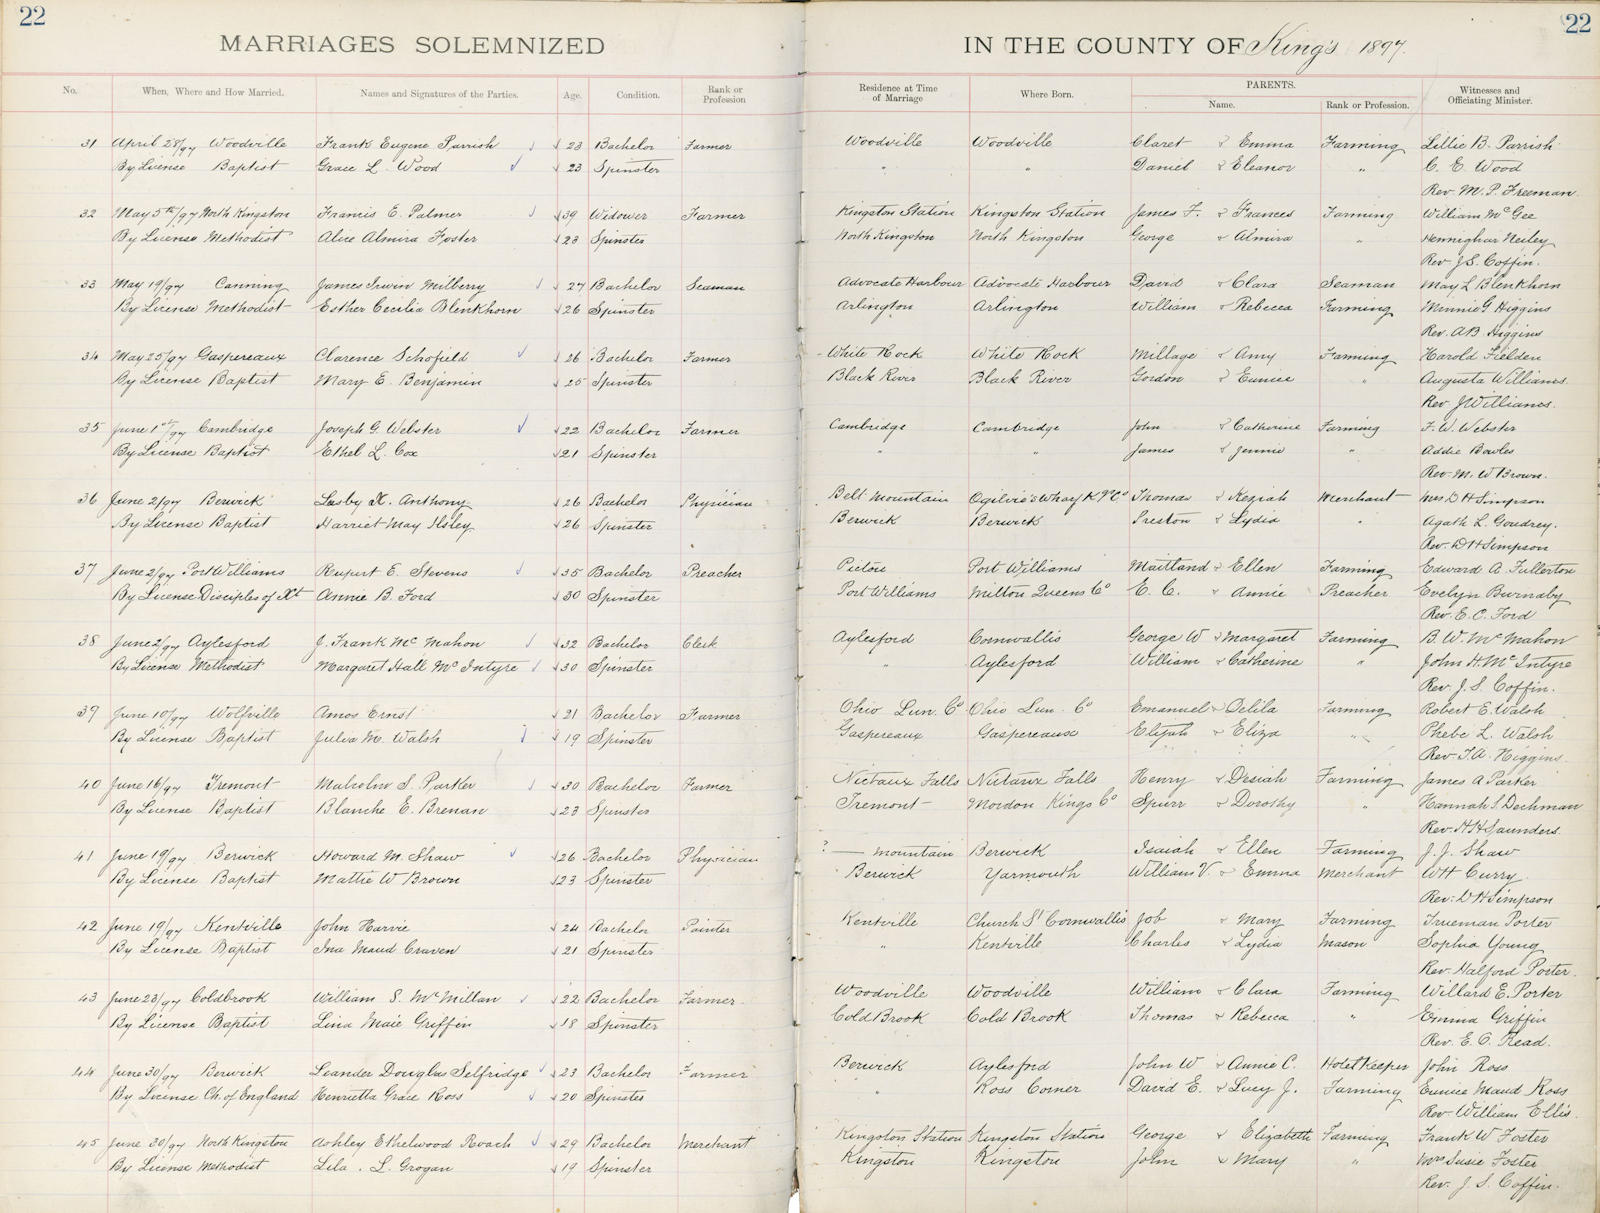 22
22
MARRIAGES SOLEMNIZED IN THE COUNTY OF King's 1897.
No. When, Where and How Married. Names and Signatures of the Parties. Age. Condition. Rank or Profession Residence at Time of Marriage Where Born. PARENTS. Name. Rank or Profession. Witnesses and Officiating Minister.
31 April 28/97 Woodville Frank Eugene Parrish 23 Bachelor Farmer Woodville Woodville Claret & Emma Farming Lillie B. Parrish
By License Baptist Grace L. Wood 23 Spinster " " Daniel & Eleanor " C. E. Wood
Rev. M. P. Freeman.
32 May 5th/97 North Kingston Francis E. Palmer 39 Widower Farmer Kingston Station Kingston Station James F. & Frances Farming William McGee
By License Methodist Alice Almira Foster 23 Spinster North Kingston North Kingston George & Almira " Hennighar Neiley
Rev. J. S. Coffin.
33 May 19/97 Canning James Irwin Milberry 27 Bachelor Seaman Advocate Harbour Advocate Harbour David & Clara Seaman May L Blenkhorn
By License Methodist Esther Cecilia Blenkhorn 26 Spinster Arlington Arlington William & Rebecca Farming Minnie G. Higgins
Rev. A B Higgins
34 May 25/97 Gaspereaux Clarence Schofield 26 Bachelor Farmer White Rock White Rock Millage & Amy Farming Harold Fielden
By License Baptist Mary E. Benjamin 25 Spinster Black River Black River Gordon & Eunice " Augusta Williams.
Rev. J Williams.
35 June 1st/97 Cambridge Joseph G. Webster 22 Bachelor Farmer Cambridge Cambridge John & Catherine Farming F. W. Webster
By License Baptist Ethel L. Cox 21 Spinster " " James & Jennie " Addie Bowles
Rev. M. W Brown.
36 June 2/97 Berwick Lesby H. Anthony 26 Bachelor Physician Belt Mountain Ogilvie's Wharf K's Co Thomas & Keziah Merchant Mrs. D H Simpson
By License Baptist Harriet May Ilsley 26 Spinster Berwick Berwick Preston & Lydia " Agath L. Goudrey.
Rev. D H Simpson
37 June 2/97 Port Williams Rupert E. Stevens 35 Bachelor Preacher Pictou Port Williams Maitland & Ellen Farming Edward A. Fullerton
By License Disciples of Xt Annie B. Ford 30 Spinster Port Williams Milton Queens Co E. C. & Annie Preacher Evelyn Burnaby
Rev. E. C. Ford
38 June 2/97 Aylesford J. Frank McMahon 32 Bachelor Clerk Aylesford Cornwallis George W & Margaret Farming B. W. McMahon
By License Methodist Margaret Hall McIntyre 30 Spinster " Aylesford William & Catherine " John H. McIntyre
Rev. J. S. Coffin.
39 June 10/97 Wolfville Amos Ernst 21 Bachelor Farmer Ohio Lun. Co Ohio Lun. Co Emanuel & Delila Farming Robert E. Walsh
By License Baptist Julia M. Walsh 19 Spinster Gaspereaux Gaspereaux Elijah & Eliza " Phebe L. Walsh
Rev. T. A. Higgins.
40 June 16/97 Tremont Malcolm S. Parker 30 Bachelor Farmer Nictaux Falls Nictaux Falls Henry & Desiah Farming James A Parker
By License Baptist Blanche E. Brenan 23 Spinster Tremont Mordon Kings Co Spurr & Dorothy " Hannah S. Dechman
Rev. H H Saunders.
41 June 19/97 Berwick Howard M. Shaw 26 Bachelor Physician ? — Mountain Berwick Isaiah & Ellen Farming J. J. Shaw
By License Baptist Mattie W Brown 23 Spinster Berwick Yarmouth William V. & Emma Merchant W H Curry
Rev. D H Simpson
42 June 19/97 Kentville John Harvie 24 Bachelor Painter Kentville Church St Cornwallis Job & Mary Farming Trueman Porter
By License Baptist Ina Maud Craven 21 Spinster " Kentville Charles & Lydia Mason Sophia Young
Rev. Halford Porter.
43 June 23/97 Coldbrook William S. McMillan 22 Bachelor Farmer Woodville Woodville William & Clara Farming Willard E. Porter
By License Baptist Lina Maie Griffin 18 Spinster Cold Brook Cold Brook Thomas & Rebecca " Emma Griffin
Rev. E. O. Read.
44 June 30/97 Berwick Leander Douglas Selfridge 23 Bachelor Farmer Berwick Aylesford John W & Annie C. Hotel Keeper John Ross
By License Ch. of England Henrietta Grace Ross 20 Spinster " Ross Corner David E. & Lucy J. Farming Eunice Maud Ross
Rev. William Ellis.
45 June 30/97 North Kingston Ashley Ethelwood Roach 29 Bachelor Merchant Kingston Station Kingston Station George & Elizabeth Farming Frank W Foster
By License Methodist Lila. L. Grogan 19 Spinster Kingston Kingston John & Mary " Mrs Susie Foster
Rev. J. S. Coffin.